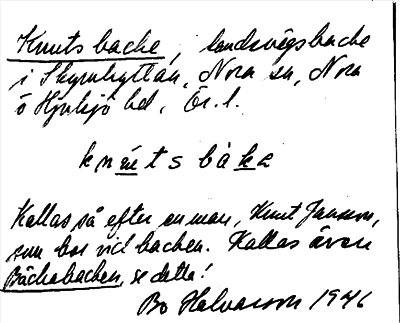 Knuts backe, landsvägsbacke
i Skymhyttan, Nora sn, Nora
o Hjulsjö hd, Ör. l.
knu̲ts bàk̲a
Kallas så efter en man, Knut Jansson,
som bor vid backen. Kallas även
Bäckabacken, se detta!
Bo Halvarson 1946